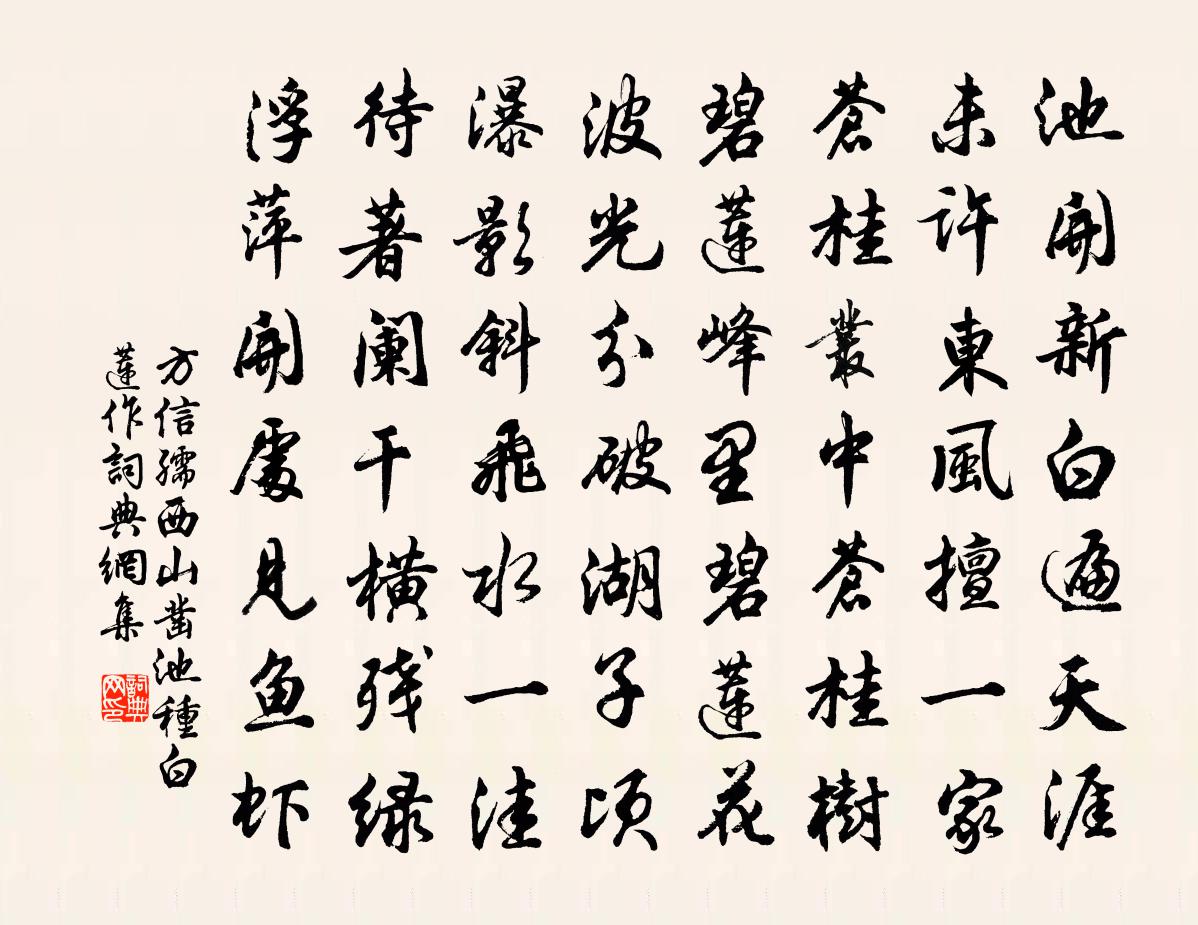 池開新白遍天涯
未許東風擅一家
蒼桂叢中蒼桂樹
碧蓮峰里碧蓮花
波光分破湖子頃
瀑影斜飛水一洼
待著闌干橫残绿
浮萍開處見鱼虾
方信孺西山凿池種白
蓮作詞典網集
詞典网印